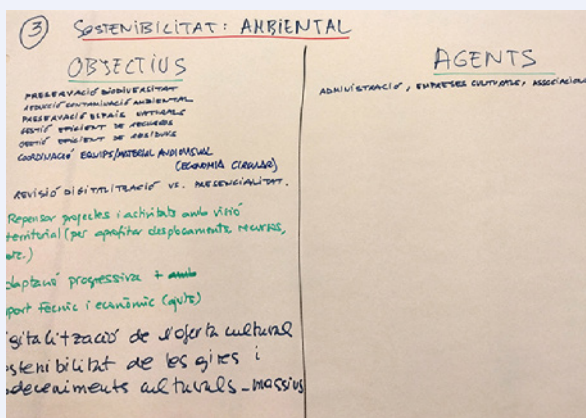 3 SOSTENIBILITAT: AMBIENTAL
OBJECTIUS
PRESERVACIÓ BIODIVERSITAT
REDUCCIÓ CONTAMINACIÓ AMBIENTAL
PRESERVACIÓ ESPAIS NATURALS
GESTIÓ EFICIENT DE RECURSOS
GESTIÓ EFICIENT DE RESIDUS
COORDINACIÓ EQUIPS/MATERIAL AUDIOVISUAL
(ECONOMIA CIRCULAR)
REVISIÓ DIGITALITZACIÓ VS. PRESENCIALITAT.
Repensar projectes i activitats amb visió
territorial (per aprofitar desplaçaments recursos,
etc.)
daptació progressiva + amb
port tècnic i econòmic (ajuts)
igitalització de l'oferta cultural
ostenibilitat de les gires i
deveniments culturals massius
AGENTS
ADMINISTRACIÓ, EMPRESES CULTURALS, ASSOCIACIONS